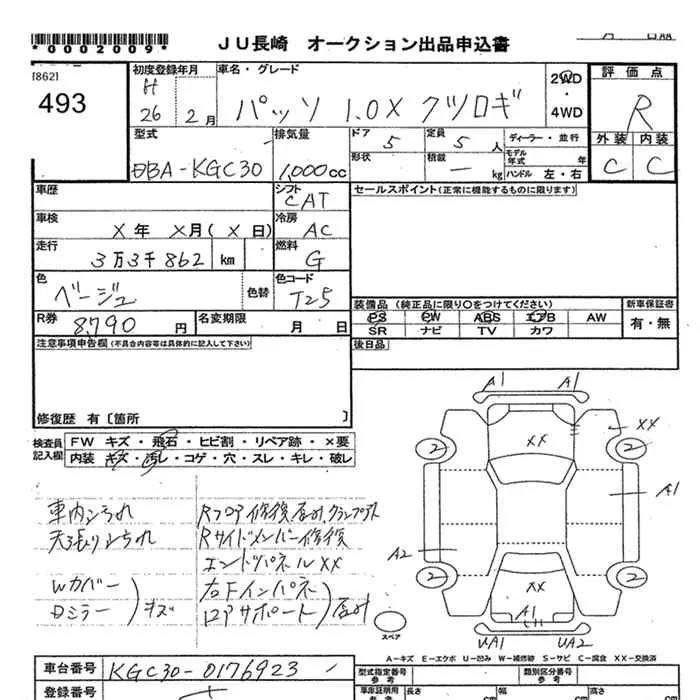 *0002009*
JU長崎 オークション出品申込書
[862]
493
初度登録年月
H
26 2月
車名・グレード
パッソ 1.0X クツロギ
2WD
・
4WD
評価点
R
外装 内装
C C
型式
DBA-KGC30
排気量
1,000cc
ドア 5
定員 5人
形状
積載 — kg
ディーラー・並行
モデル年式 年
ハンドル 左・右
車歴
シフト
CAT
セールスポイント(正常に機能するものに限ります)
車検
X年 X月(X日)
冷房
AC
走行
3万3千862 km
燃料
G
色
ベージュ
色替
色コード
T25
装備品(純正品に限り○をつけてください)
新車保証書
有・無
PS PW ABS エアB AW
SR ナビ TV カワ
R券
8,790円
名変期限 月 日
後日品
注意事項申告欄(不具合内容等は具体的に記入して下さい)
修復歴 有〔箇所 〕
検査員記入欄
FW キズ・飛石・ヒビ割・リペア跡・×要
内装 キズ・汚レ・コゲ・穴・スレ・キレ・破レ
車内シミ汚れ
天張りシミ汚れ
Wカバー
Dミラー
キズ
Rフロア修復、凹み、クランプ跡
Rサイドメンバー修復
エンドパネルXX
右Fインパネ
ロアサポート
凹み
A1 A1
XX
XX
2 2
A1
A2
2 2
XX
A1
UA1 UA2
スペア
A-キズ E-エクボ U-凹み W-補修跡 S-サビ C-腐食 XX-交換済
車台番号
KGC30-0176923
型式指定番号
参考
類別区分番号
参考
登録番号
車庫証明用
参考
長さ cm
幅 cm
高さ cm